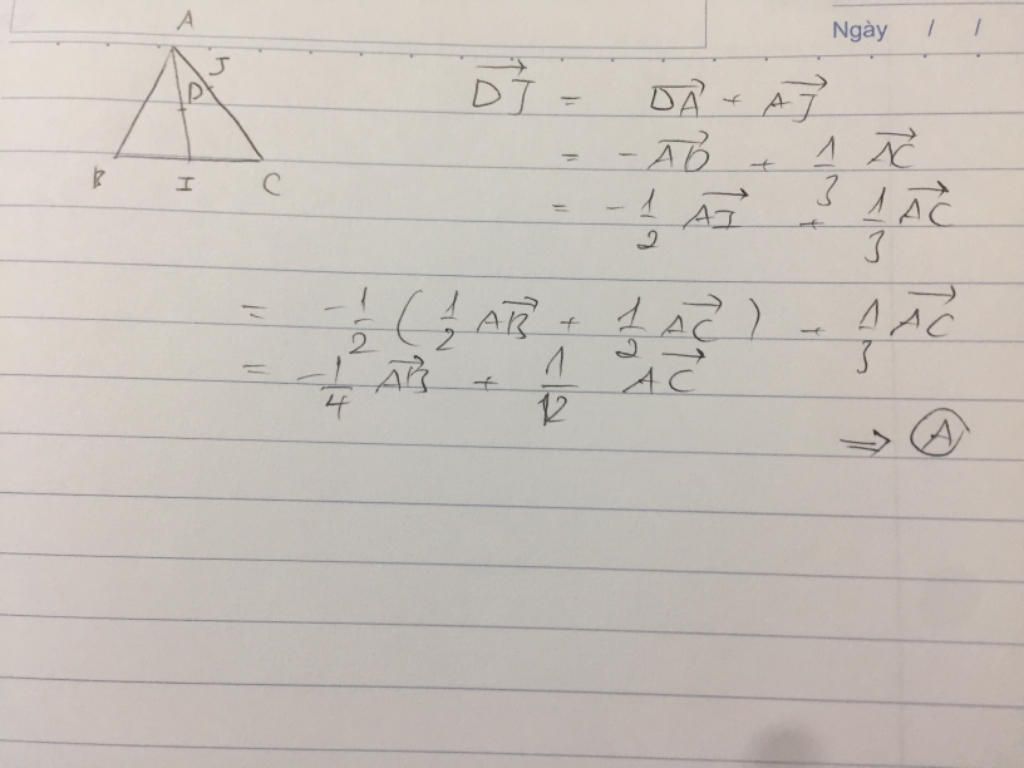 Ngày / /
A
J
D
B I C
$\overrightarrow{DJ} = \overrightarrow{DA} + \overrightarrow{AJ}$
$= -\overrightarrow{AD} + \frac{1}{3} \overrightarrow{AC}$
$= -\frac{1}{2} \overrightarrow{AI} + \frac{1}{3} \overrightarrow{AC}$
$= -\frac{1}{2} ( \frac{1}{2} \overrightarrow{AB} + \frac{1}{2} \overrightarrow{AC} ) + \frac{1}{3} \overrightarrow{AC}$
$= -\frac{1}{4} \overrightarrow{AB} + \frac{1}{12} \overrightarrow{AC}$
⇒ Ⓐ